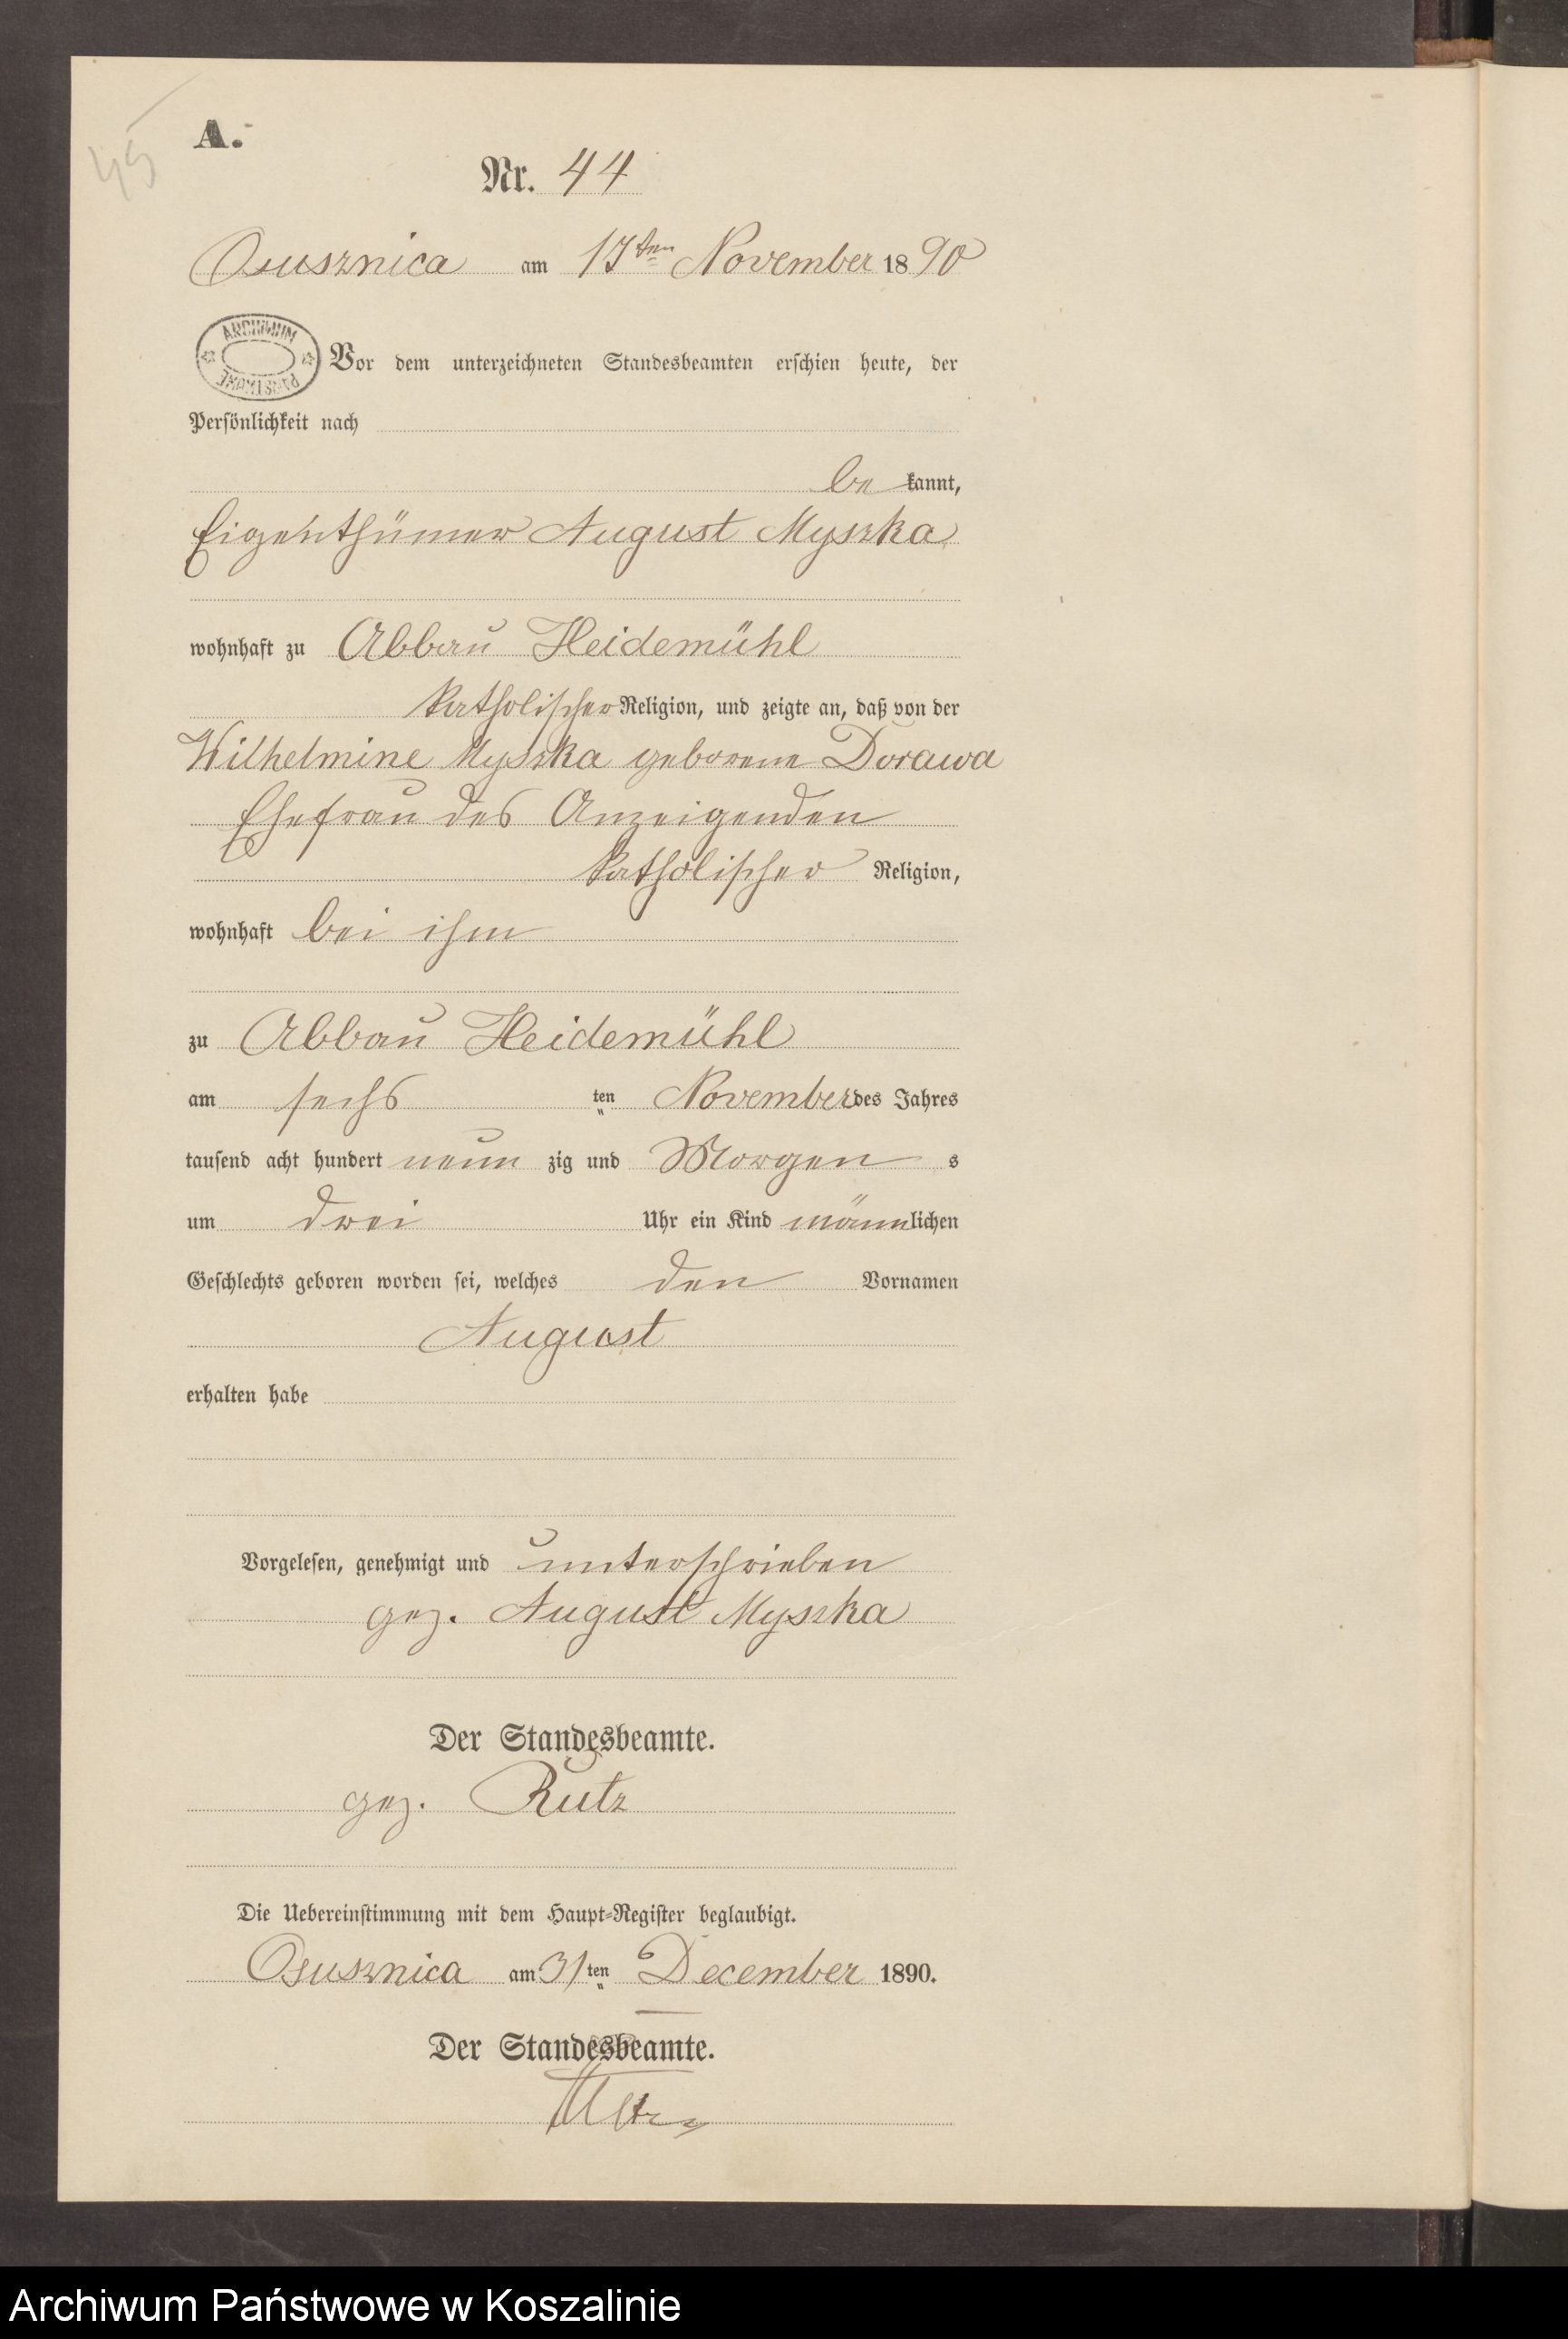 45
A.
Nr. 44
Osusznica am ten November 1890
ARCHIWUM PAŃSTWOWE
Vor dem unterzeichneten Standesbeamten erschien heute, der
Persönlichkeit nach
be kannt,
Eigenthümer August Myszka
wohnhaft zu Abbau Heidemühl
katholischer Religion, und zeigte an, daß von der
Wilhelmine Myszka geborene Dorawa
Ehefrau des Anzeigenden
katholischer Religion,
wohnhaft bei ihm
zu Abbau Heidemühl
am sechs ten November des Jahres
tausend acht hundert neun zig und Morgen s
um drei Uhr ein Kind männlichen
Geschlechts geboren worden sei, welches den Vornamen
August
erhalten habe
Vorgelesen, genehmigt und unterschrieben
gez. August Myszka
Der Standesbeamte.
gez. Rutz
Die Uebereinstimmung mit dem Haupt-Register beglaubigt.
Osusznica am 31ten December 1890.
Der Standesbeamte.
Archiwum Państwowe w Koszalinie